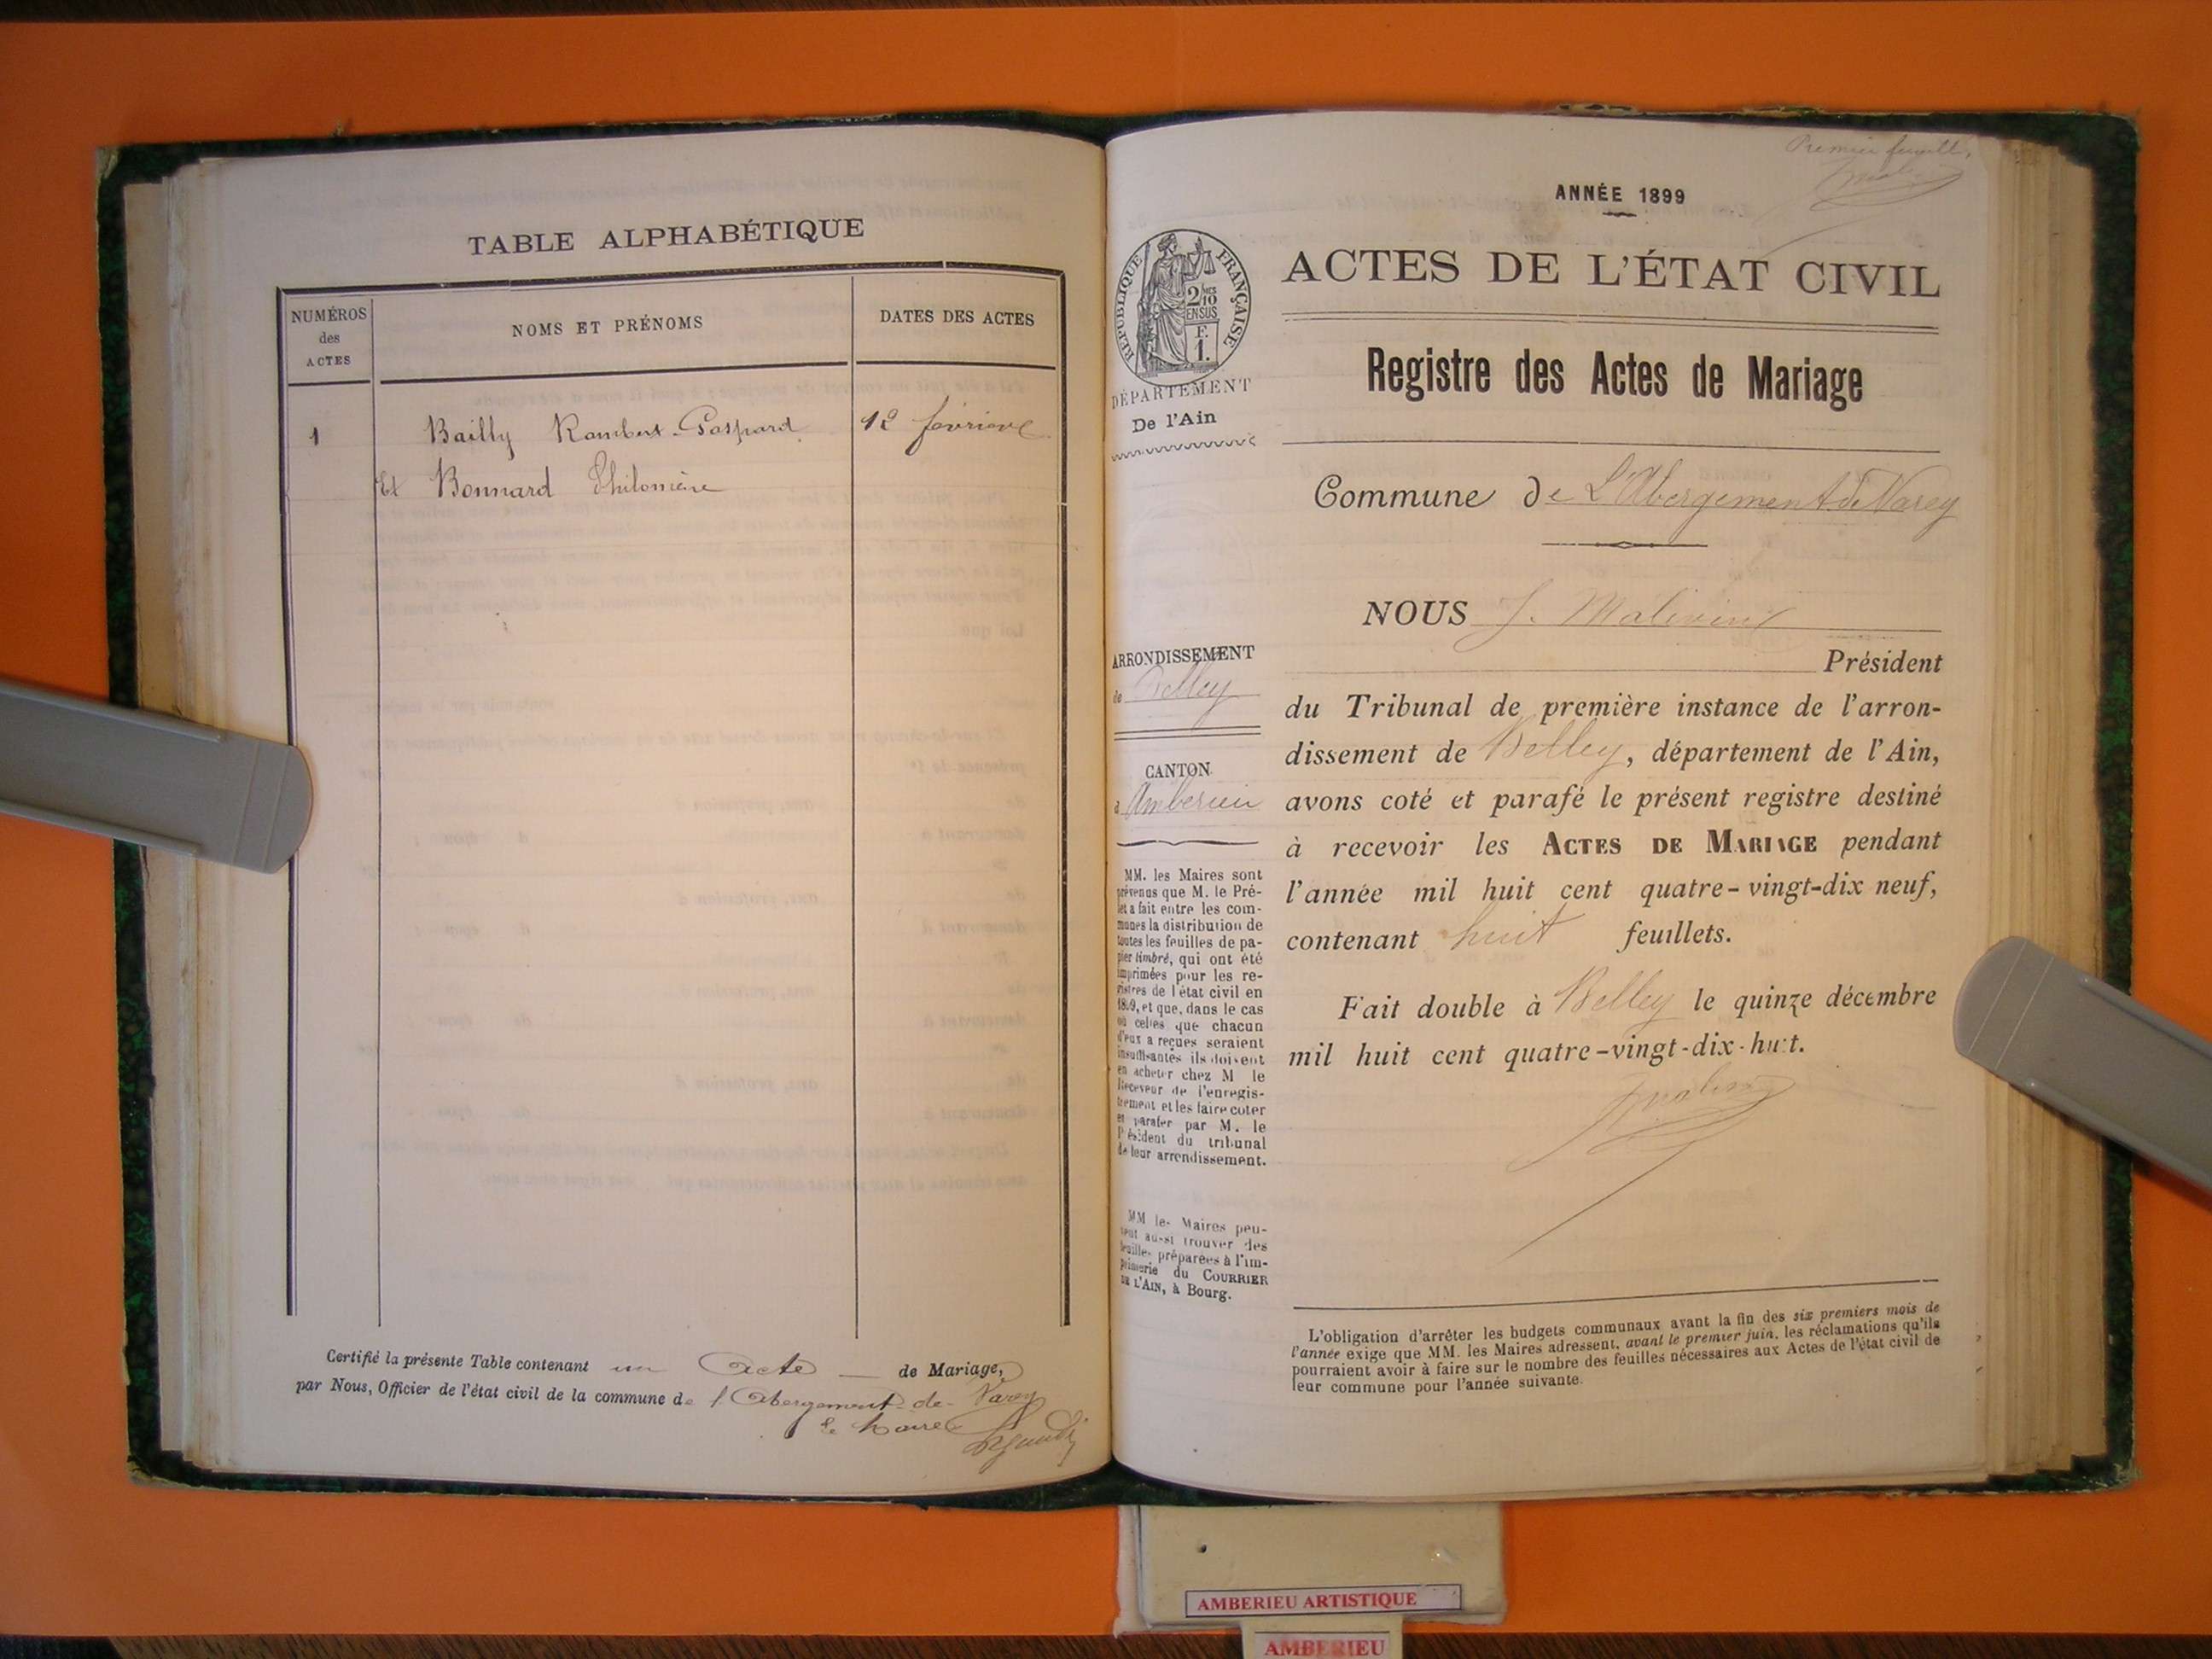 TABLE ALPHABÉTIQUE
NUMÉROS
des
ACTES
NOMS ET PRÉNOMS
DATES DES ACTES
1 Bailly Rambert-Gaspard 12 février
Et Bonnard Philomène
Certifié la présente Table contenant un Acte — de Mariage,
par Nous, Officier de l'état civil de la commune de l'Abergement-de-Varey
Le Maire
Premier feuillet,
ANNÉE 1899
ACTES DE L'ÉTAT CIVIL
RÉPUBLIQUE FRANÇAISE
F.
1.
DÉPARTEMENT
De l'Ain
Registre des Actes de Mariage
Commune de L'Abergement de Varey
NOUS J.
Président
du Tribunal de première instance de l'arron-
dissement de Belley, département de l'Ain,
avons coté et parafé le présent registre destiné
à recevoir les ACTES DE MARIAGE pendant
l'année mil huit cent quatre-vingt-dix neuf,
contenant huit feuillets.
Fait double à Belley le quinze décembre
mil huit cent quatre-vingt-dix-huit.
ARRONDISSEMENT
de Belley
CANTON
d'Amberieu
MM. les Maires sont
prévenus que M. le Pré-
fet a fait entre les com-
munes la distribution de
toutes les feuilles de pa-
pier timbré, qui ont été
imprimées pour les re-
gistres de l'état civil en
1899, et que, dans le cas
où celles que chacun
d'eux a reçues seraient
insuffisantes ils doivent
en acheter chez M le
Receveur de l'enregis-
trement et les faire coter
et parafer par M. le
Président du tribunal
de leur arrondissement.
MM les Maires peu-
vent aussi trouver des
feuilles préparées à l'im-
primerie du COURRIER
DE L'AIN, à Bourg.
L'obligation d'arrêter les budgets communaux avant la fin des six premiers mois de
l'année exige que MM. les Maires adressent, avant le premier juin, les réclamations qu'ils
pourraient avoir à faire sur le nombre des feuilles nécessaires aux Actes de l'état civil de
leur commune pour l'année suivante.
AMBERIEU ARTISTIQUE
AMBERIEU